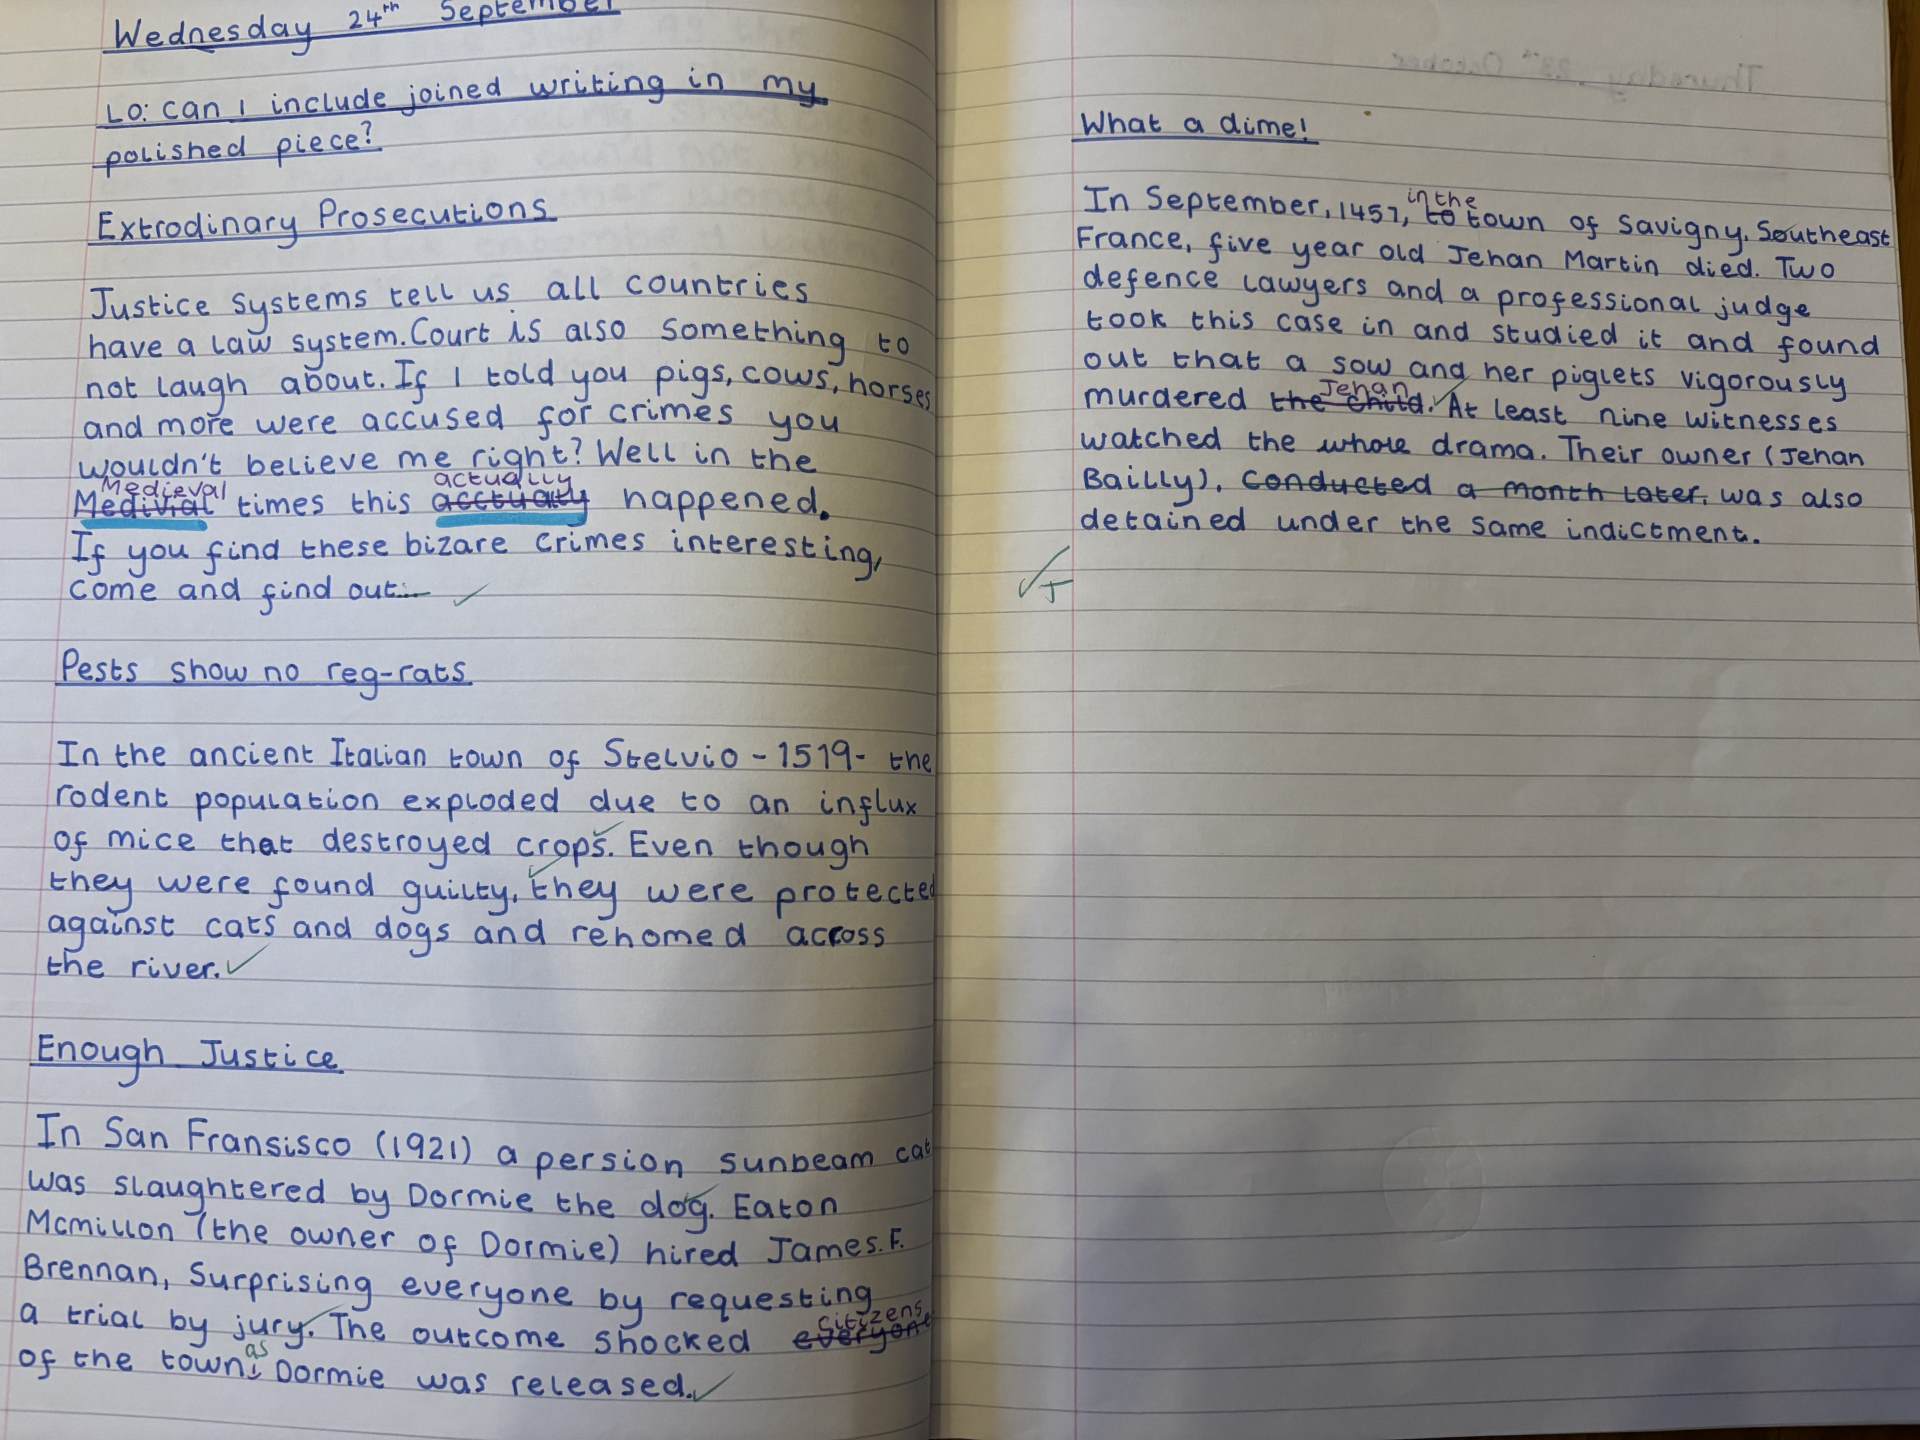 Wednesday 24th September
LO: can I include joined writing in my
polished piece?
Extrodinary Prosecutions
Justice systems tell us all countries
have a law system. Court is also something to
not laugh about. If I told you pigs, cows, horses
and more were accused for crimes you
wouldn't believe me right? Well in the
Medieval actually
Medivial times this acctualy happened.
If you find these bizare crimes interesting,
come and find out...
Pests show no reg-rats
In the ancient Italian town of Stelvio - 1519 - the
rodent population exploded due to an influx
of mice that destroyed crops. Even though
they were found guilty, they were protected
against cats and dogs and rehomed across
the river.
Enough Justice
In San Fransisco (1921) a persion sunbeam cat
was slaughtered by Dormie the dog. Eaton
Mcmillon (the owner of Dormie) hired James. F.
Brennan, surprising everyone by requesting
a trial by jury. The outcome shocked everyone
citizens
of the town as Dormie was released.
What a dime!
In September, 1457, in the to town of Savigny, Southeast
France, five year old Jehan Martin died. Two
defence lawyers and a professional judge
took this case in and studied it and found
out that a sow and her piglets vigorously
murdered the child. Jehan At least nine witnesses
watched the whole drama. Their owner (Jehan
Bailly), conducted a month later, was also
detained under the same indictment.